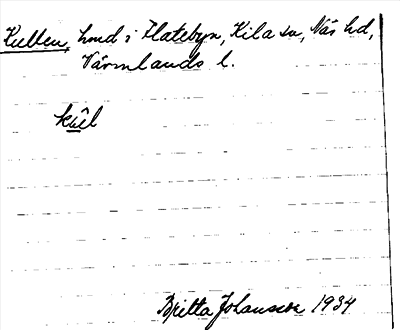 Kullen, hmd i Flatebyn, Kila sn, Näs hd,
Värmlands l.
kûl
Britta Johansson 1934